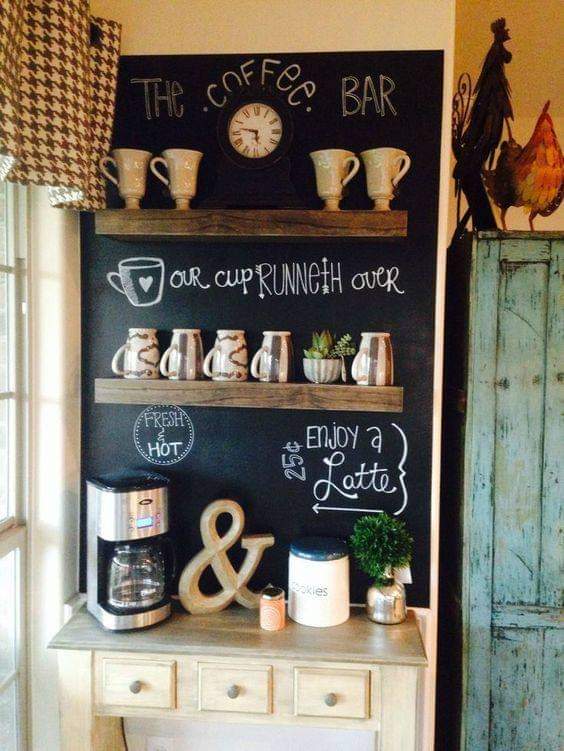 THE COFFEE BAR
OUR CUP RUNNETH OVER
FRESH
&
HOT
25¢
ENJOY A
Latte
&
Cookies